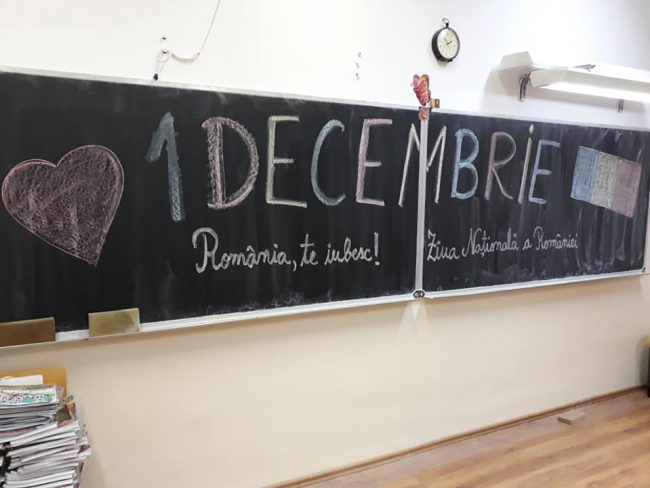 1 DECEMBRIE
România, te iubesc!
Ziua Națională a României